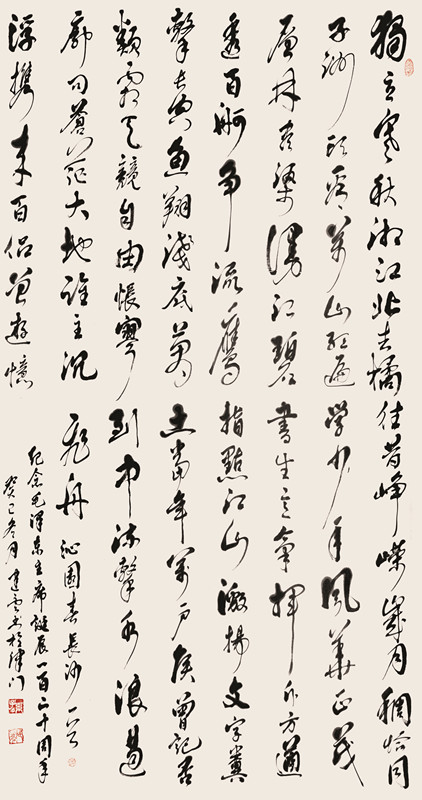 獨立寒秋湘江北去橘
子洲頭看萬山紅遍
層林盡染漫江碧
透百舸爭流鷹
擊長空魚翔淺底萬
類霜天競自由悵寥
廓問蒼茫大地誰主沉
浮攜來百侶曾遊憶
往昔崢嶸歲月稠恰同
學少年風華正茂
書生意氣揮斥方遒
指點江山激揚文字糞
土當年萬戶侯曾記否
到中流擊水浪遏
飛舟 沁園春長沙
紀念毛澤東主席誕辰一百二十周年
癸巳冬月建雲書於津門